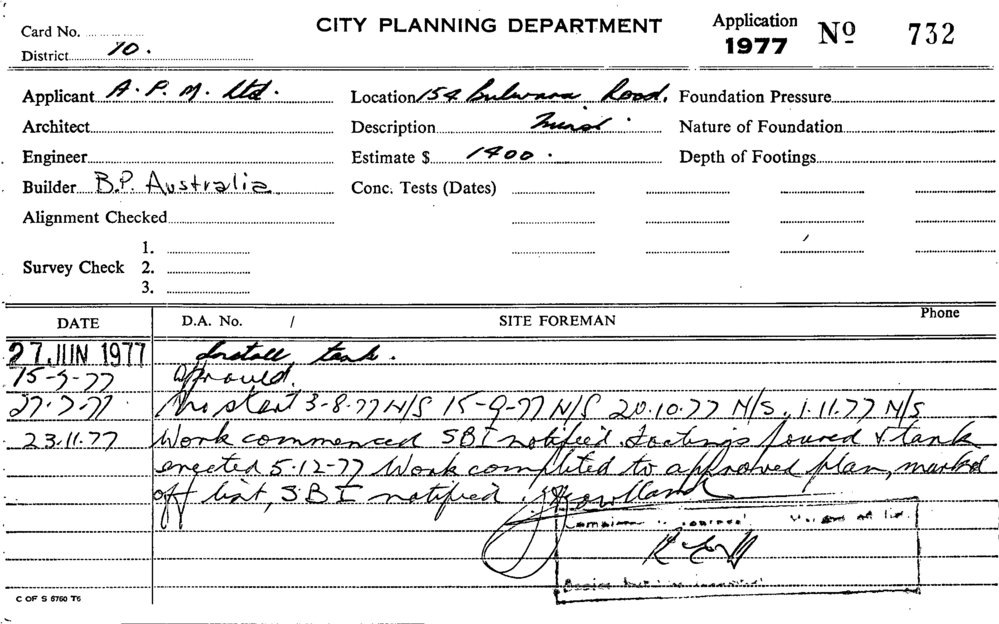 CITY PLANNING DEPARTMENT
Card No.
District 10.
Application 1977 Nº 732
Applicant A. P. M. Ltd.
Location 154 Bulwara Road.
Foundation Pressure
Architect
Description
Nature of Foundation
Engineer
Estimate $ 1400.
Depth of Footings
Builder B.P. Australia
Conc. Tests (Dates)
Alignment Checked
Survey Check 1. 2. 3.
DATE D.A. No. / SITE FOREMAN Phone
27 JUN 1977 Install tank.
15-7-77 Approved.
27.7.77 No start 3-8-77 N/S 15-9-77 N/S 20.10.77 N/S. 1.11.77 N/S
23.11.77 Work commenced SBI notified. Footings poured & tank
erected 5-12-77 Work completed to approved plan, marked
off list, SBI notified.
C OF S 6760 T6